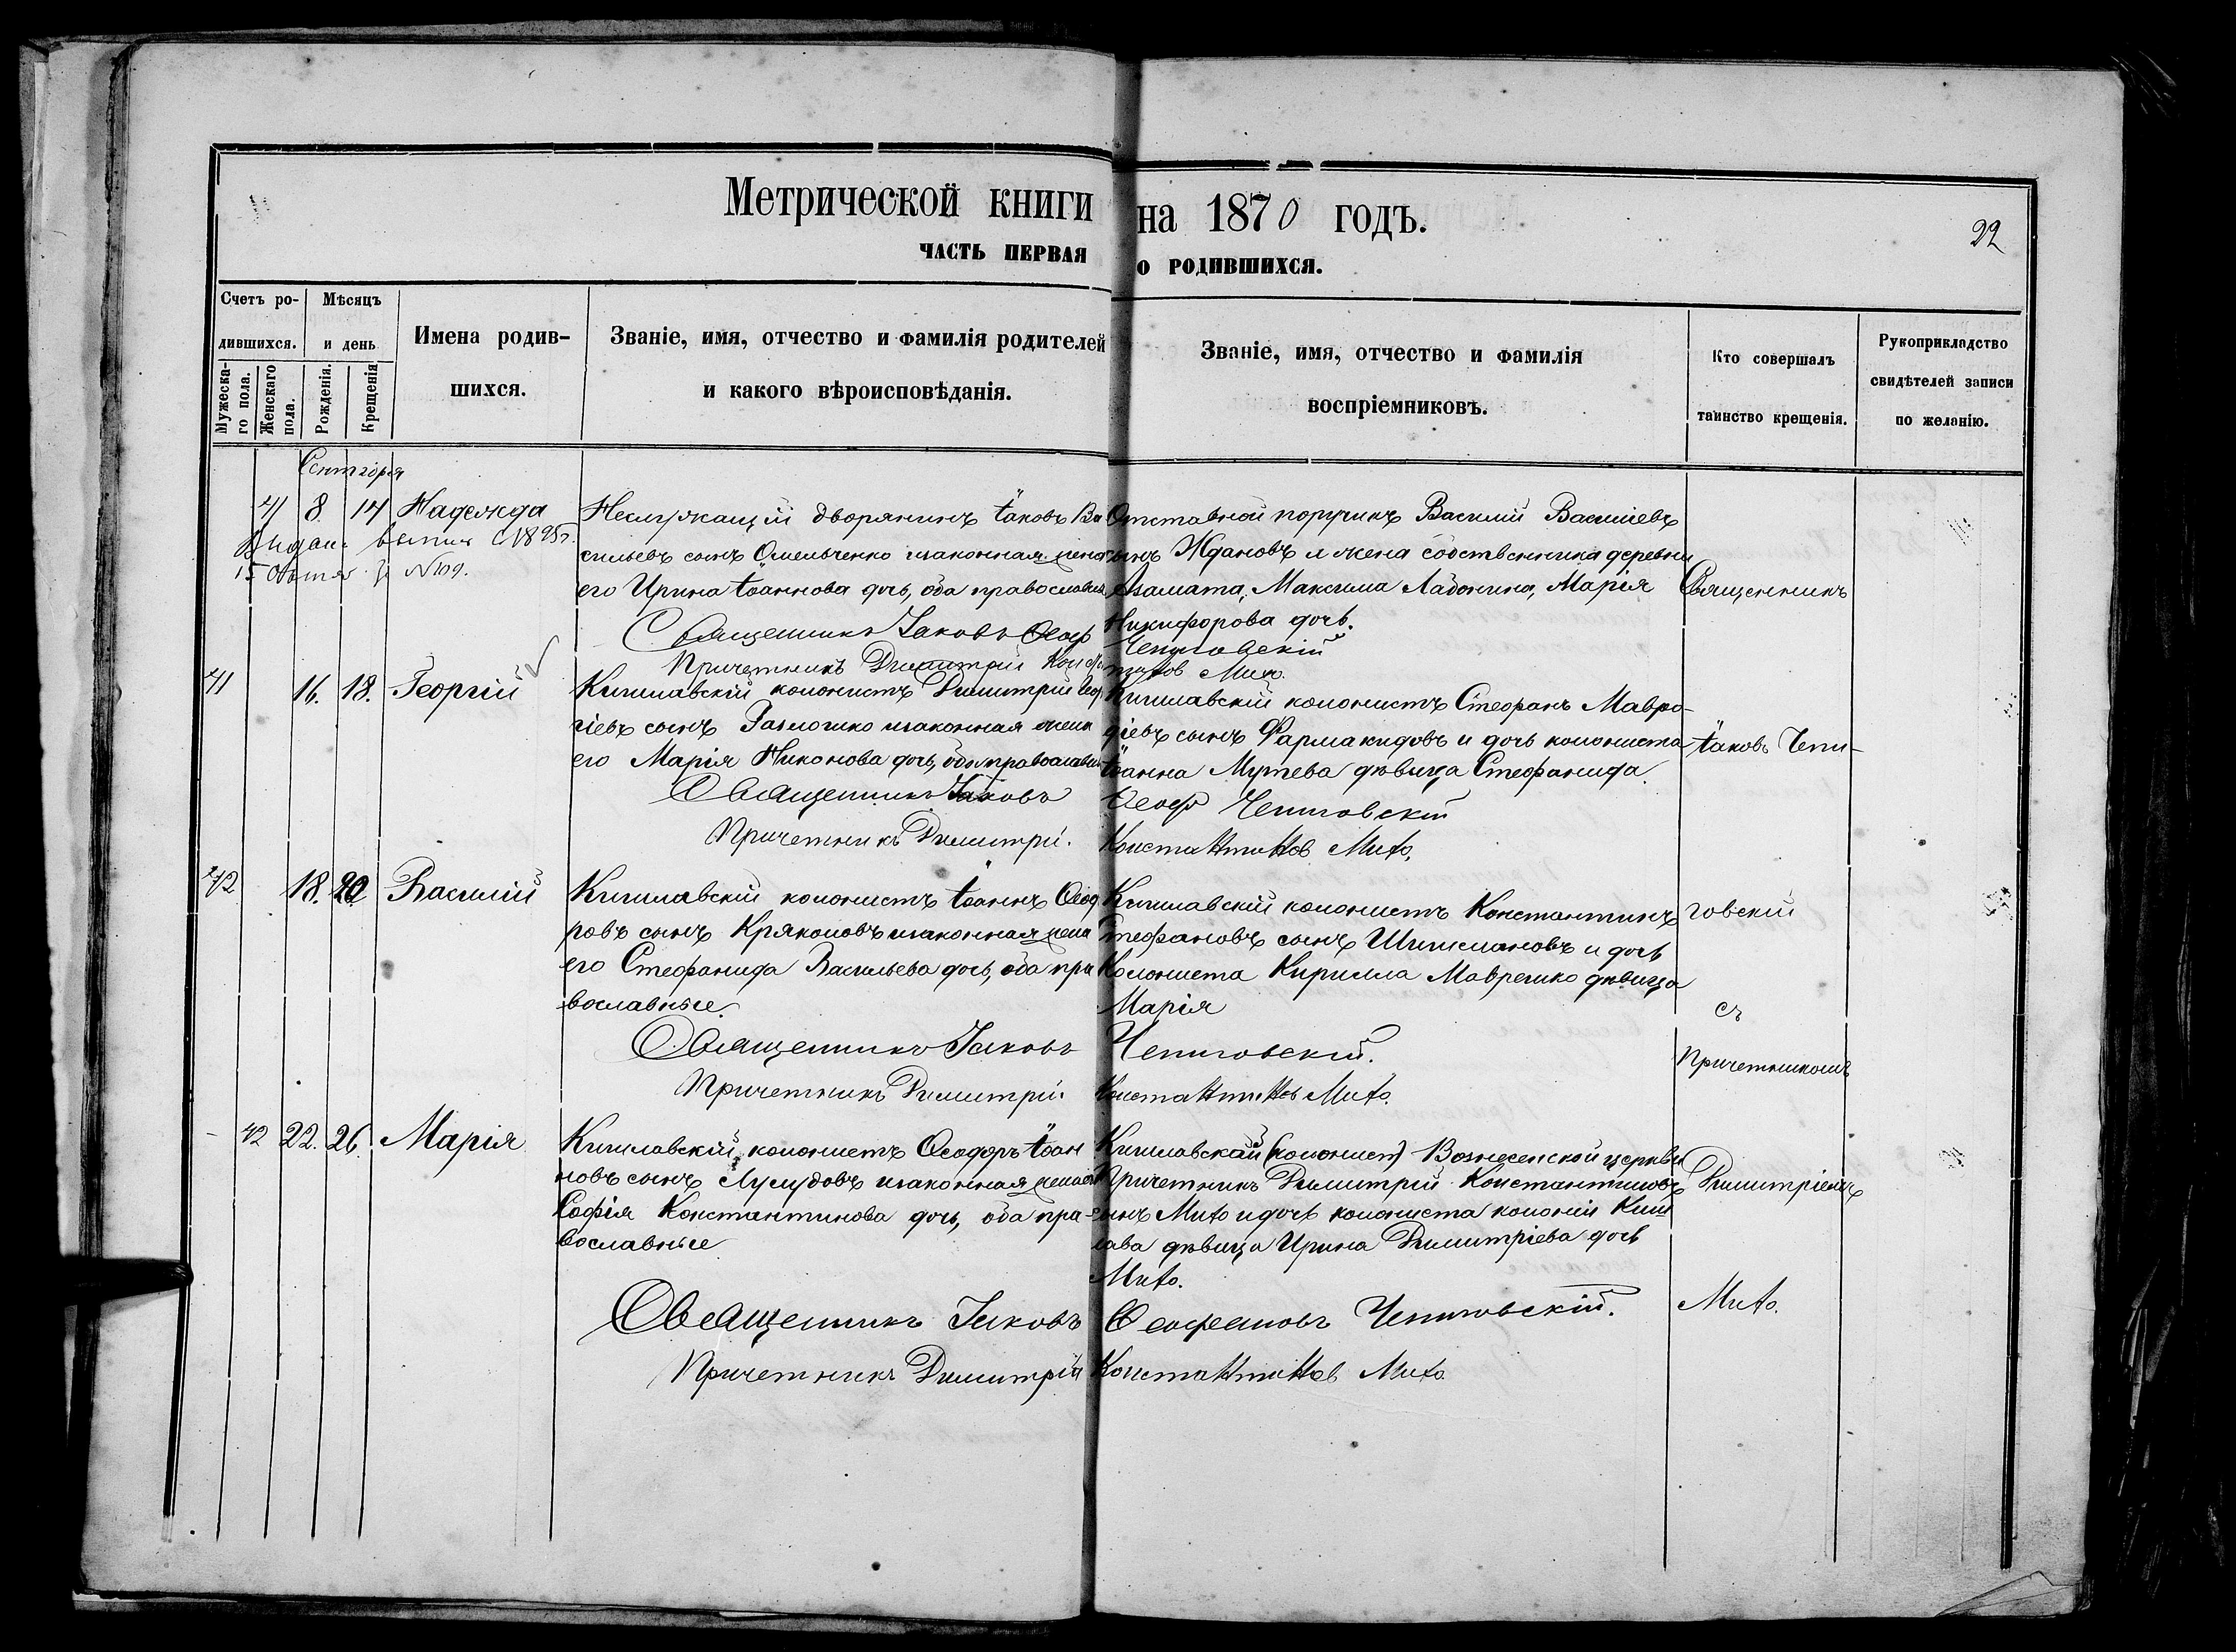 Метрической книги на 1870 годъ.
22
ЧАСТЬ ПЕРВАЯ о РОДИВШИХСЯ.
Счетъ родившихся.
Мужескаго пола.
Женскаго пола.
Мѣсяцъ и день
Рожденія.
Крещенія
Имена родившихся.
Званіе, имя, отчество и фамилія родителей
и какого вѣроисповѣданія.
Званіе, имя, отчество и фамилія
воспріемниковъ.
Кто совершалъ
таинство крещенія.
Рукоприкладство
свидѣтелей записи
по желанію.
Сентября
41 8. 14 Надежда
1895г.
15 № 109.
Неслужащій дворянинъ Іаковъ Ва
сильевъ сынъ Омельченко и законная жена
его Ирина Іоаннова дочь, оба православн
Священникъ Іаковъ Ѳеоф
Причетникъ Димитрій Конста
Отставной поручикъ Василій Васильевъ
сынъ Ждановъ и жена собственника деревни
Азамата, Максима Ладонина, Марія
Никифорова дочь.
Чепиговскій
нтинов Мито.
Священникъ
41 16. 18. Георгій
Кишлавскій колонистъ Димитрій Геор
гіевъ сынъ и законная жена
его Марія Никонова дочь, оба православн
Священникъ Іаковъ
Причетникъ Димитрі.
Кишлавскій колонистъ Стефанъ Мавро-
діевъ сынъ Фармакидовъ и дочь колониста
Іоанна Мутева дѣвица Стефанида.
Ѳеоф Чепиговскій
Константинов Мито.
Іаковъ Чепи-
42 18. 20 Василій
Кишлавскій колонистъ Іоаннъ Ѳеод
ровъ сынъ Кряконовъ и законная жена
его Стефанида Васильева дочь, оба пра
вославные.
Священникъ Іаковъ
Причетникъ Димитрій
Кишлавскій колонистъ Константинъ
Стефановъ сынъ Шишмановъ и дочь
Колониста Кирилла Мавренко дѣвица
Марія
Чепиговскій.
Константинов Мито.
говскій
съ
Причетникомъ
42 22. 26. Марія
Кишлавскій колонистъ Ѳеодоръ Іоан
новъ сынъ и законная жена его
Софія Константинова дочь, оба пра-
вославные
Священникъ Іаковъ
Причетникъ Димитрій
Кишлавскай (колонист) Вознесенской церкви
Причетникъ Димитрій Константиновъ
сынъ Мито и дочь колониста колоніи Киш
лава дѣвица Ирина Димитріева дочь
Мито.
Ѳеофановъ Чепиговскій.
Константинов Мито
Димитріемъ
Мито.